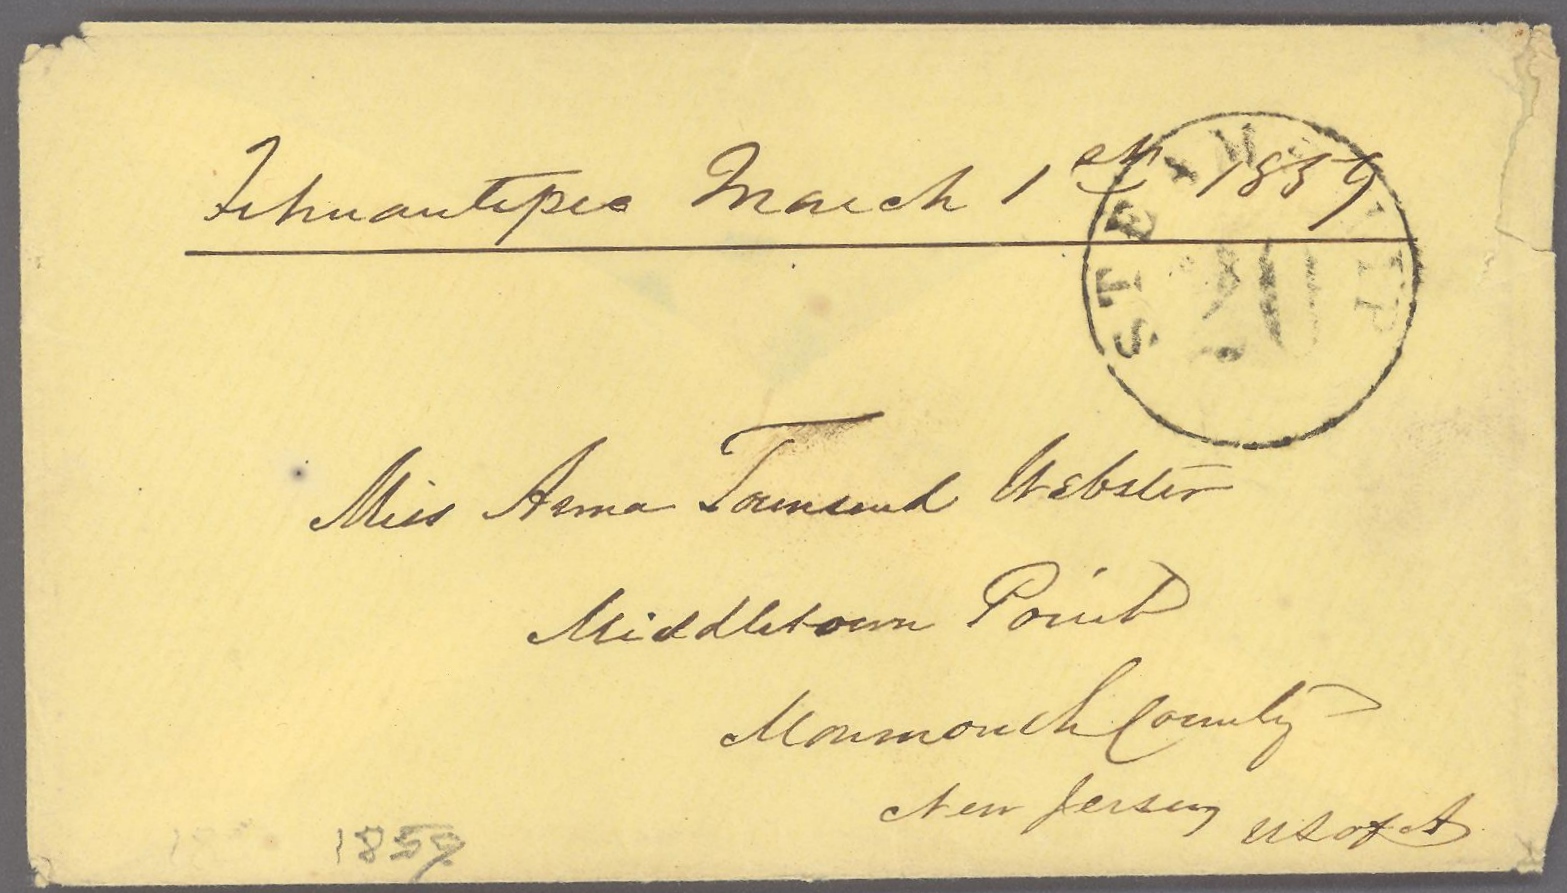 Tehuantepec March 1st 1859
STEAMSHIP
20
Miss Anna Townsend Webster
Middletown Point
Monmouth County
New Jersey U S of A
1859